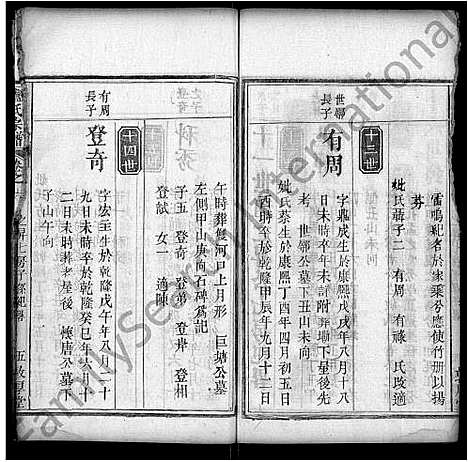 雷鳴紀名於家乘兮應使竹册以揚
芬
妣氏薛子二 有周 有祿 氏改適
十三世
世鄉
長子
有周
字鼎成生於康熙戊戌年八月十八
日未時卒年未詳附塟塌下星後先
考 世鄉公墓下丑山未向
妣氏蔡生於康熙丁酉年四月初五日
酉時卒於乾隆甲辰年九月十二日
午時葬鯉河戸上月形 巨塘公墓
左側甲山庚向石碑爲記
子五 登奇 登弟 登舉 登相
登猷 女一 適陳
十四世
有周
長子
登奇
字宏主生於乾隆戊午年八月二十
九日未時卒於乾隆癸巳年六月十
二日未時葬老屋後 懷唐公墓下
子山午向
FamilySearch International